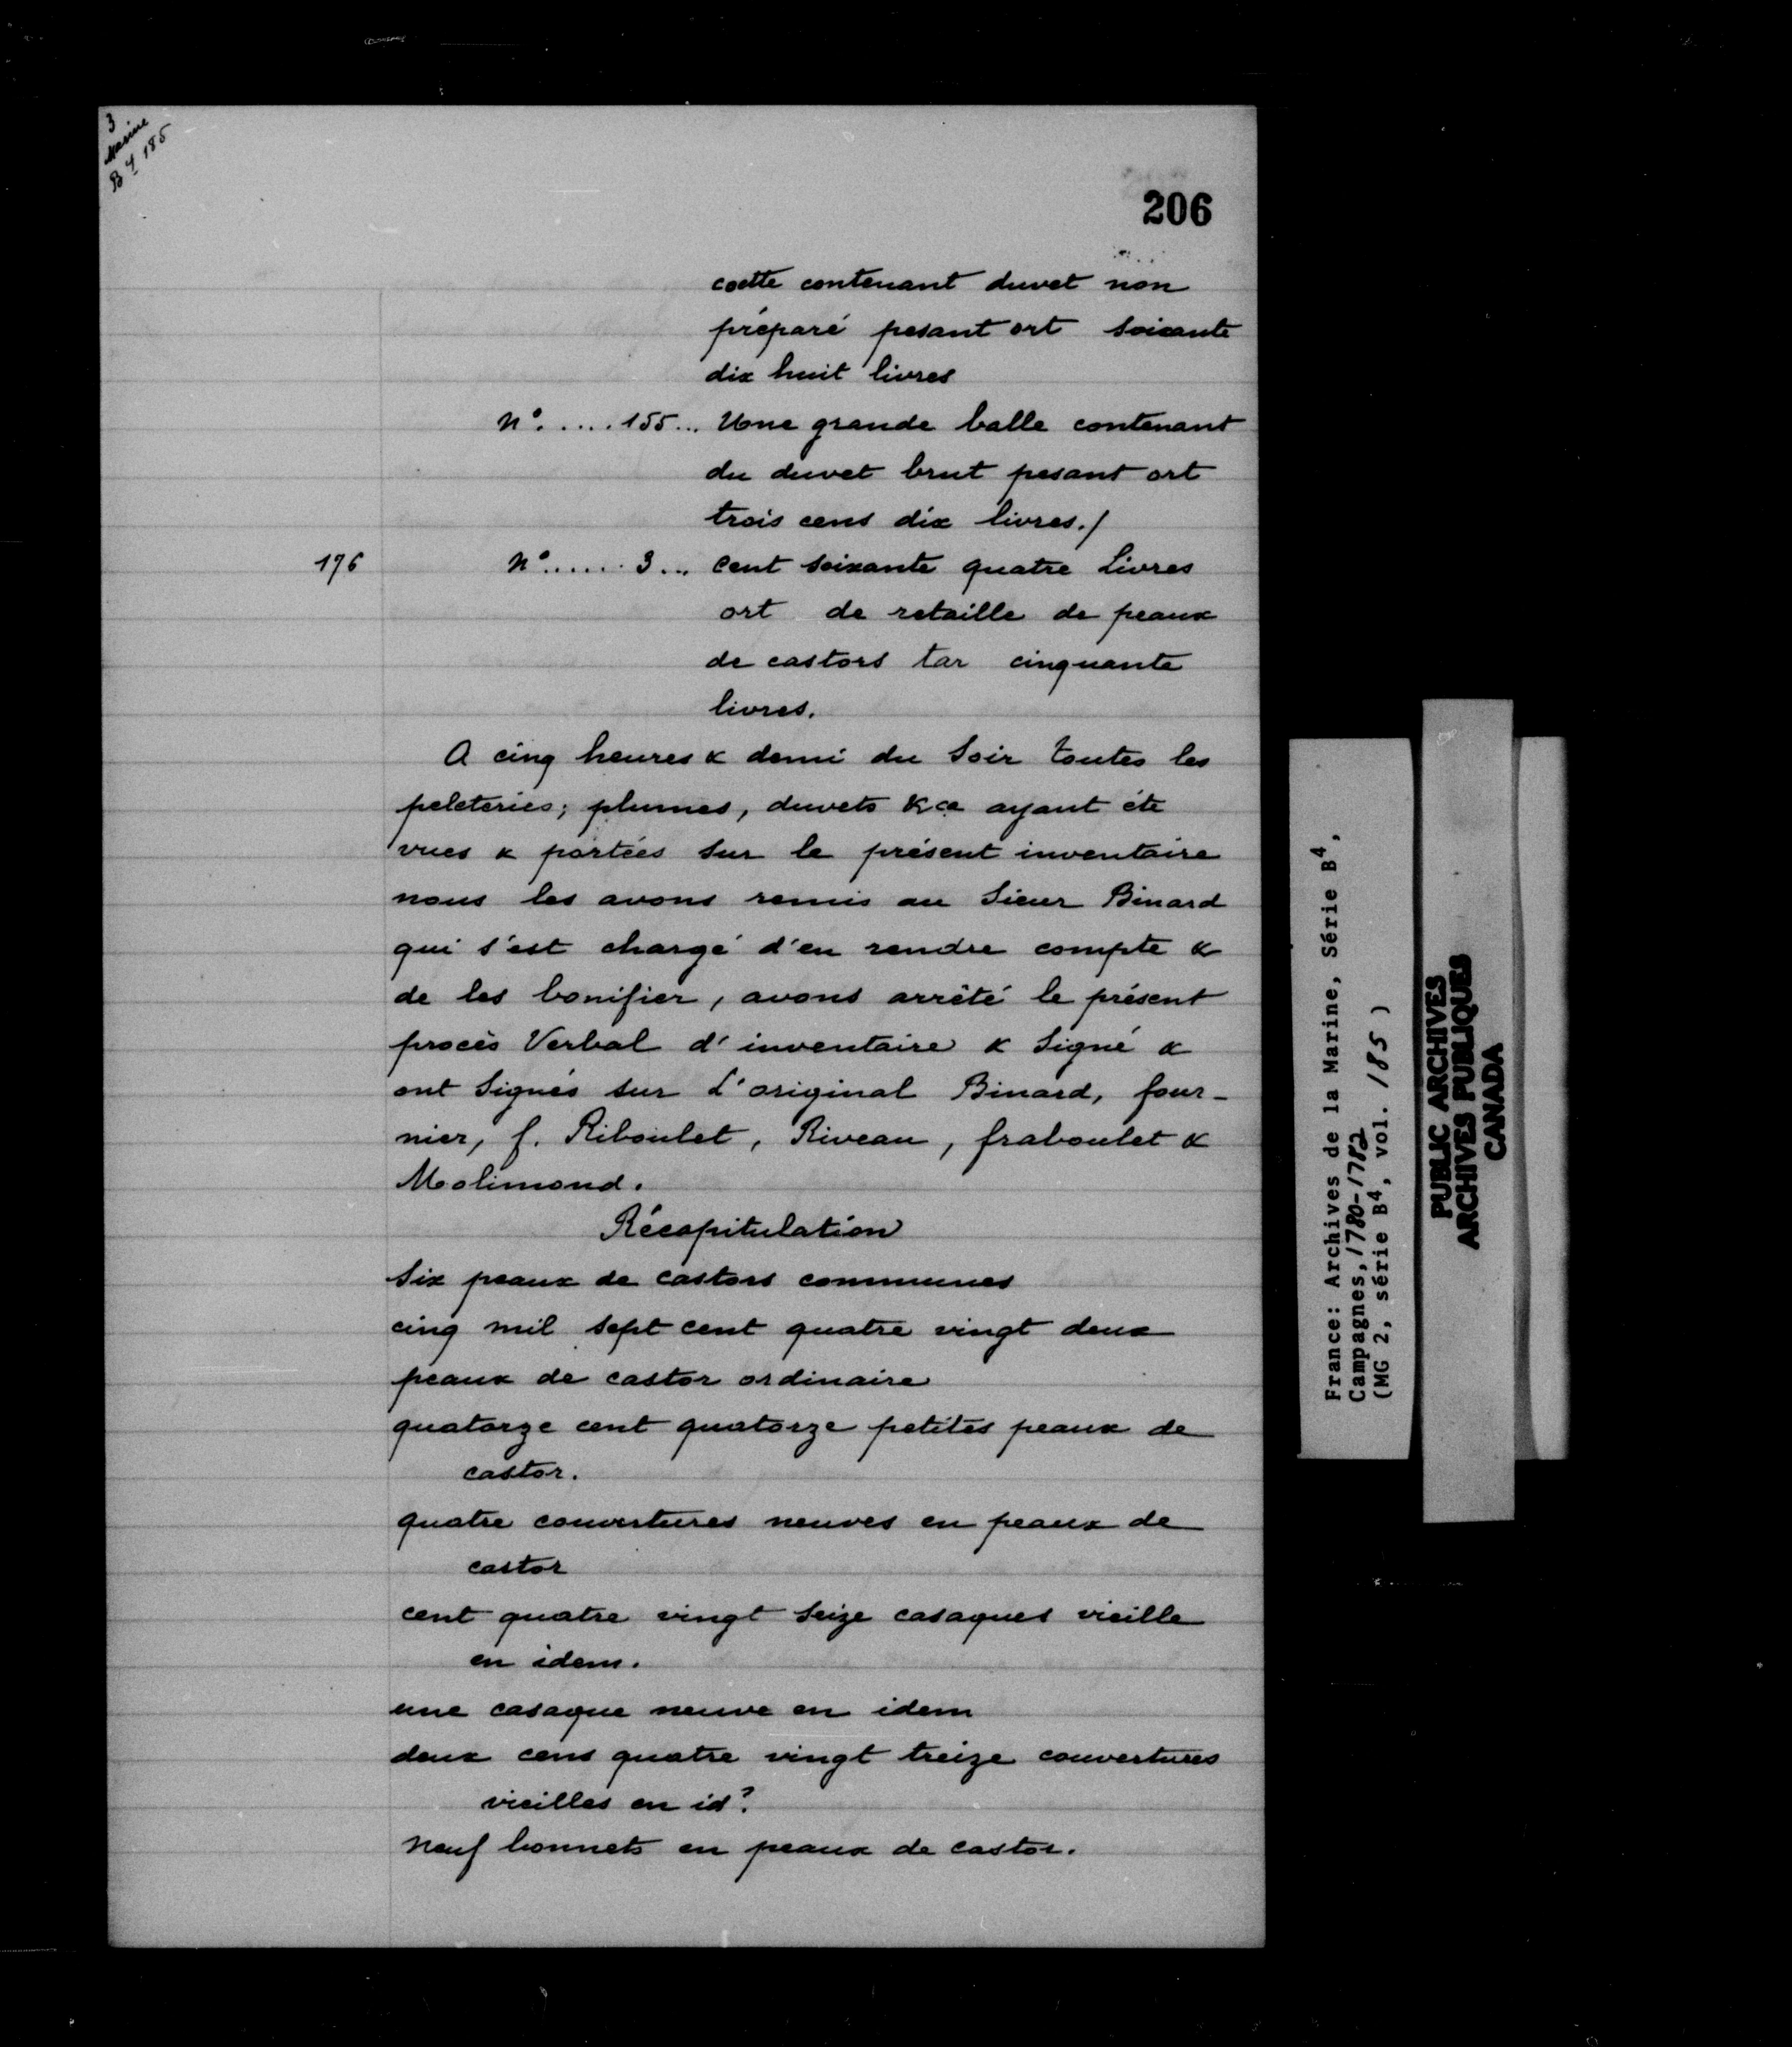 3
Marine
B 4 185
206
coette contenant duvet non
préparé pesant ort soixante
dix huit livres
N°. .... 155... Une grande balle contenant
du duvet brut pesant ort
trois cens dix livres./
176
N°...... 3... Cent soixante quatre Livres
ort de retaille de peaux
de castors tar cinquante
livres.
A cinq heures & demi du Soir toutes les
peleteries; plumes, duvets &ca ayant été
vues & portées sur le présent inventaire
nous les avons remis au Sieur Binard
qui s'est chargé d'en rendre compte &
de les bonifier, avons arrêté le présent
procès Verbal d'inventaire & Signé &
ont Signés sur L'original Binard, four-
nier, f. Riboulet, Riveau, fraboulet &
Molimond.
Récapitulation
Six peaux de castors communes
cinq mil sept cent quatre vingt deux
peaux de castor ordinaire
quatorze cent quatorze petites peaux de
castor.
quatre couvertures neuves en peaux de
castor
cent quatre vingt seize casaques vieille
en idem.
une casaque neuve en idem
deux cens quatre vingt treize couvertures
vieilles en id?
Neuf bonnets en peaux de castor.
France: Archives de la Marine, Série B4,
Campagnes, 1780-1782
(MG 2, série B4, vol. 185 )
PUBLIC ARCHIVES
ARCHIVES PUBLIQUES
CANADA